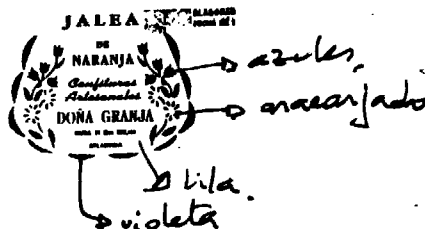 JALEA
DE
NARANJA
Confituras
Artesanales
DOÑA GRANJA
azules,
anaranjado
lila.
violeta